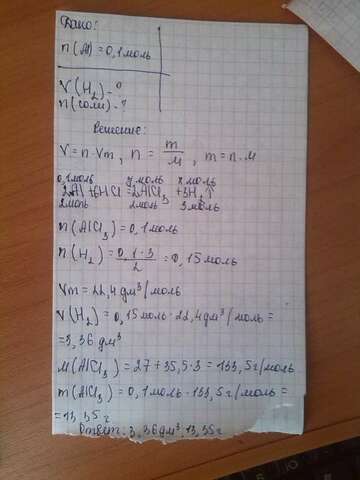 Дано:
n(Al)=0,1моль
V(H₂)-?
n(соли)-?
Решение:
V=n·Vm, n = m/M, m=n·M
0,1моль y моль x моль
2Al+6HCl=2AlCl₃+3H₂↑
2моль 2моль 3моль
n(AlCl₃)=0,1моль
n(H₂)=0,1·3/2=0,15моль
Vm=22,4дм³/моль
V(H₂)=0,15моль·22,4дм³/моль=
=3,36дм³
M(AlCl₃)=27+35,5·3=133,5г/моль
m(AlCl₃)=0,1моль·133,5г/моль=
=13,35г
Ответ: 3,36дм³, 13,35г